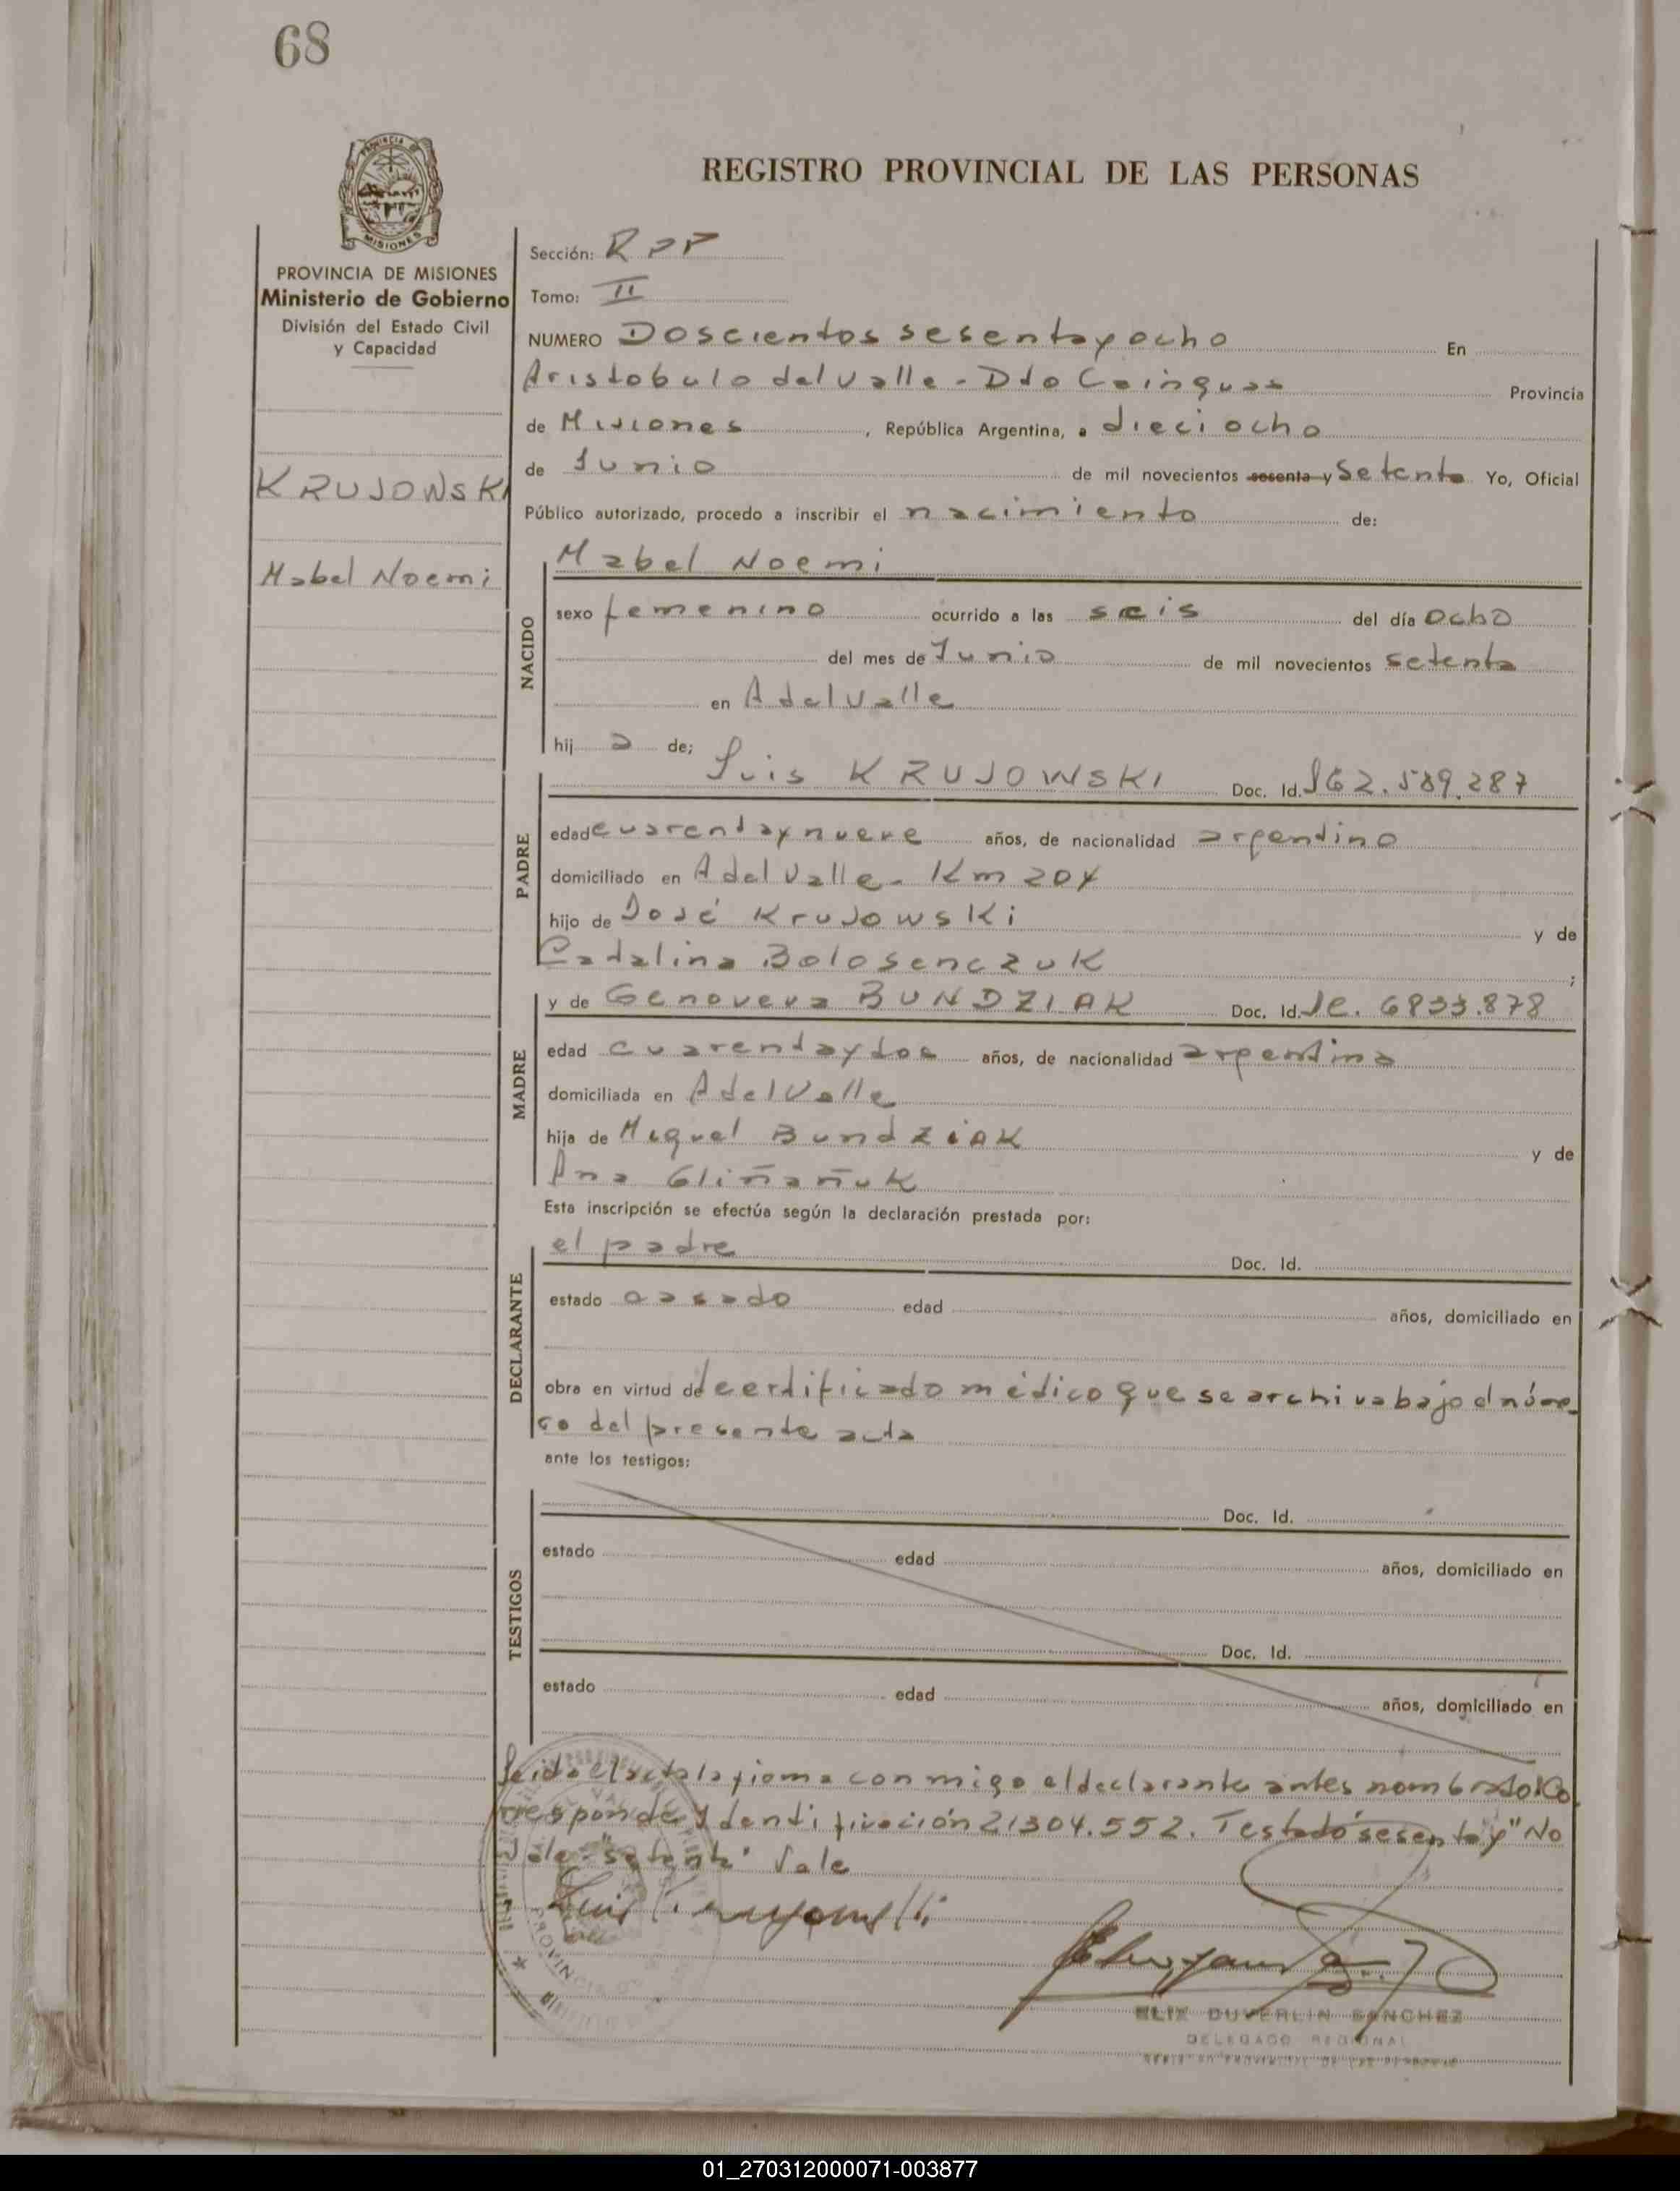 68
PROVINCIA DE
MISIONES
REGISTRO PROVINCIAL DE LAS PERSONAS
PROVINCIA DE MISIONES
Ministerio de Gobierno
División del Estado Civil
y Capacidad
KRUJOWSKI
Mabel Noemi
Sección: RPP
Tomo: II
NUMERO Doscientos sesenta y ocho En
Aristobulo del Valle - Dto Cainguas Provincia
de Misiones, República Argentina, a dieciocho
de Junio de mil novecientos sesenta y Setenta Yo, Oficial
Público autorizado, procedo a inscribir el nacimiento de:
NACIDO
Mabel Noemi
sexo femenino ocurrido a las seis del día ocho
del mes de Junio de mil novecientos setenta
en A del Valle
hij a de;
PADRE
Luis KRUJOWSKI Doc. Id. 2.589.287
edad cuarenta y nueve años, de nacionalidad argentino
domiciliado en A del Valle - Km 204
hijo de José Krujowski y de
Catalina Bolosenczuk ;
MADRE
y de Genoveva BUNDZIAK Doc. Id. 6833.878
edad cuarenta y dos años, de nacionalidad argentina
domiciliada en A del Valle
hija de Miguel BundZiAK y de
Ana Gliñañuk
Esta inscripción se efectúa según la declaración prestada por:
DECLARANTE
el padre Doc. Id.
estado casado edad años, domiciliado en
obra en virtud de certificado médico que se archiva bajo el núme
ro del presente acta
ante los testigos:
TESTIGOS
Doc. Id.
estado edad años, domiciliado en
Doc. Id.
estado edad años, domiciliado en
Leida el acta la firma conmigo el declarante antes nombrado. Co
rresponde Identificación 21304.552. Testado "sesenta y" No
Vale "setenta" Vale
Luis Krujowski
ELIZ DUVERLIN SANCHEZ
DELEGADO REGIONAL
REGISTRO PROVINCIAL DE LAS PERSONAS
01_270312000071-003877